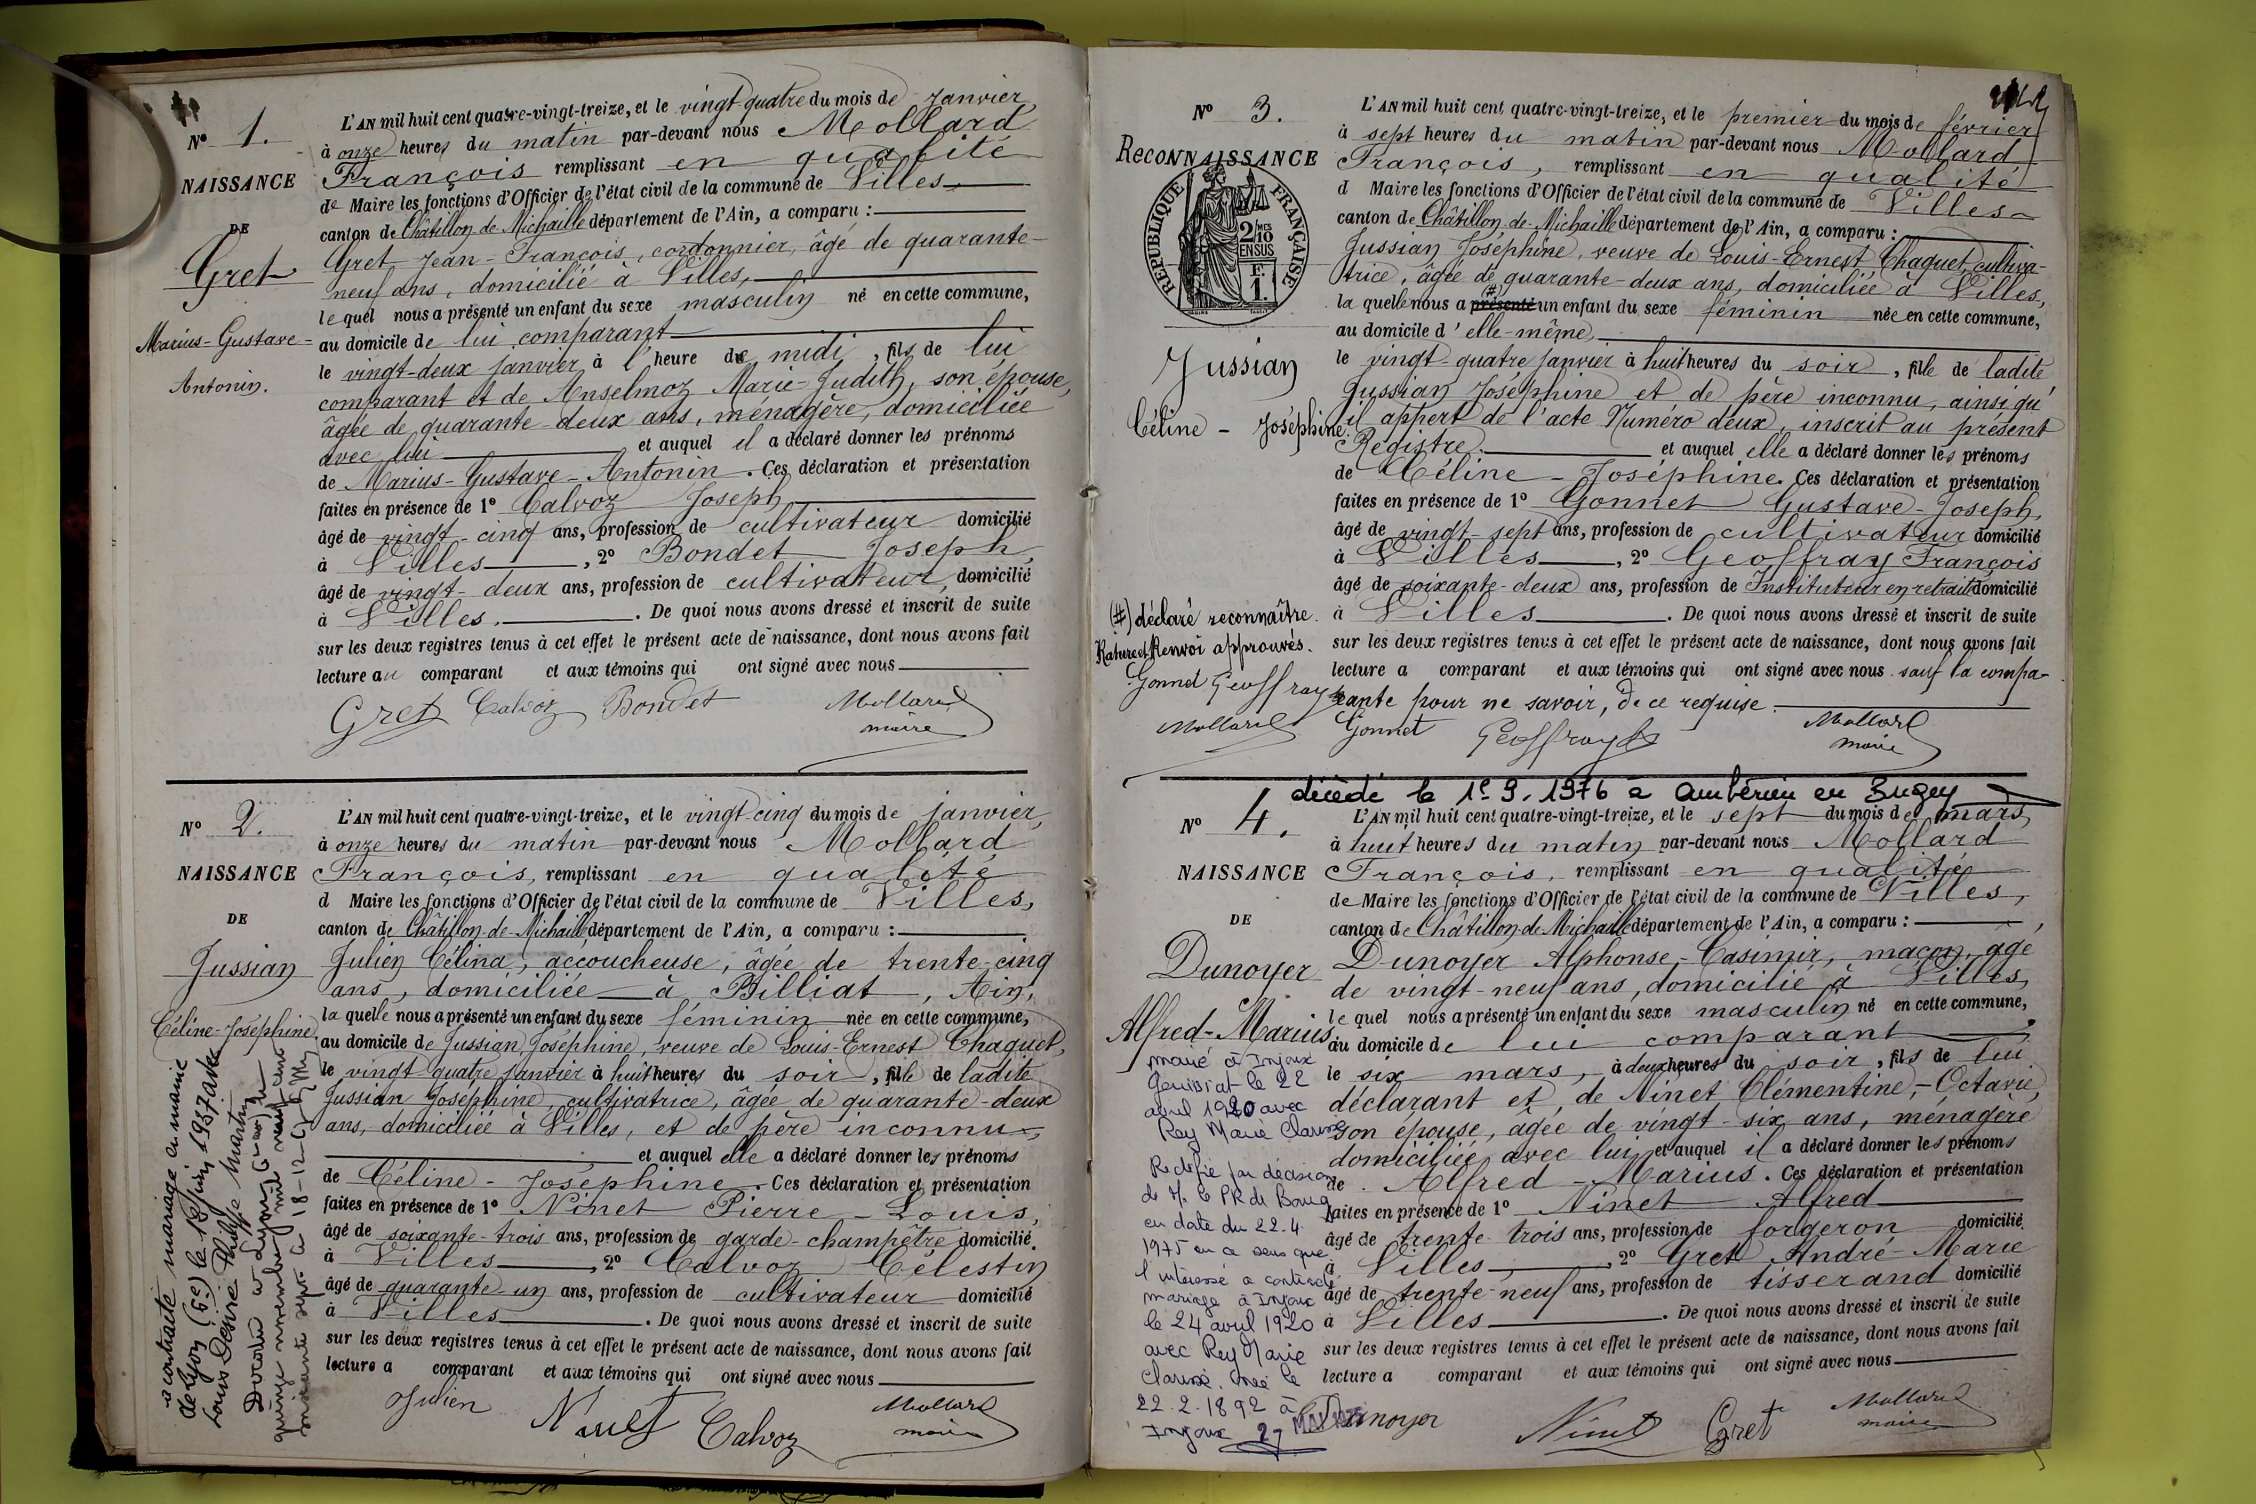 N° 1.
NAISSANCE
DE
Gret
Marius-Gustave-
Antonin.
L'AN mil huit cent quatre-vingt-treize, et le vingt-quatre du mois de janvier,
à onze heures du matin par-devant nous Mollard
François remplissant en qualité
de Maire les fonctions d'Officier de l'état civil de la commune de Villes,
canton de Châtillon-de-Michaille département de l'Ain, a comparu :
Gret Jean-François, cordonnier, âgé de quarante-
neuf ans, domicilié à Villes,
lequel nous a présenté un enfant du sexe masculin né en cette commune,
au domicile de lui comparant
le vingt-deux janvier à l'heure de midi, fils de lui
comparant et de Anselmoz Marie-Judith, son épouse,
âgée de quarante-deux ans, ménagère, domiciliée
avec lui et auquel il a déclaré donner les prénoms
de Marius-Gustave-Antonin. Ces déclaration et présentation
faites en présence de 1° Calvoz Joseph
âgé de vingt-cinq ans, profession de cultivateur domicilié
à Villes, 2° Bondet Joseph,
âgé de vingt-deux ans, profession de cultivateur, domicilié
à Villes. De quoi nous avons dressé et inscrit de suite
sur les deux registres tenus à cet effet le présent acte de naissance, dont nous avons fait
lecture au comparant et aux témoins qui ont signé avec nous
Gret Calvoz Bondet Mollard
maire
N° 2.
NAISSANCE
DE
Jussian
Céline-Joséphine.
a contracté mariage en mairie
de Lyon (6e) le 19 juin 1937 avec
Louis Désiré Philippe Martin
L'AN mil huit cent quatre-vingt-treize, et le vingt-cinq du mois de janvier,
à onze heures du matin par-devant nous Mollard
François, remplissant en qualité
d Maire les fonctions d'Officier de l'état civil de la commune de Villes,
canton de Châtillon-de-Michaille département de l'Ain, a comparu :
Julien Célina, accoucheuse, âgée de trente-cinq
ans, domiciliée à Billiat, Ain,
la quelle nous a présenté un enfant du sexe féminin née en cette commune,
au domicile de Jussian Joséphine, veuve de Louis-Ernest Chaquet,
le vingt-quatre janvier à huit heures du soir, fille de ladite
Jussian Joséphine, cultivatrice, âgée de quarante-deux
ans, domiciliée à Villes, et de père inconnu,
et auquel elle a déclaré donner les prénoms
de Céline-Joséphine. Ces déclaration et présentation
faites en présence de 1° Ninet Pierre-Louis,
âgé de soixante-trois ans, profession de garde-champêtre domicilié
à Villes, 2° Calvoz Célestin
âgé de quarante-un ans, profession de cultivateur domicilié
à Villes. De quoi nous avons dressé et inscrit de suite
sur les deux registres tenus à cet effet le présent acte de naissance, dont nous avons fait
lecture a comparant et aux témoins qui ont signé avec nous
Julien Ninet Calvoz Mollard
maire
N° 3.
RECONNAISSANCE
RÉPUBLIQUE FRANÇAISE
2/10 MES
EN SUS
F.
1.
Jussian
Céline-Joséphine.
(#) déclaré reconnaître.
Rature et Renvoi approuvés.
Gonnet Geoffray
Mollard
L'AN mil huit cent quatre-vingt-treize, et le premier du mois de février
à sept heures du matin par-devant nous Mollard
François, remplissant en qualité
d Maire les fonctions d'Officier de l'état civil de la commune de Villes
canton de Châtillon-de-Michaille département de l'Ain, a comparu :
Jussian Joséphine, veuve de Louis-Ernest Chaquet, cultiva-
trice, âgée de quarante-deux ans, domiciliée à Villes,
la quelle nous a (#) présenté un enfant du sexe féminin née en cette commune,
au domicile d'elle-même,
le vingt-quatre janvier à huit heures du soir, fille de ladite
Jussian Joséphine et de père inconnu, ainsi qu'
il appert de l'acte Numéro deux, inscrit au présent
Registre. et auquel elle a déclaré donner les prénoms
de Céline-Joséphine. Ces déclaration et présentation
faites en présence de 1° Gonnet Gustave-Joseph,
âgé de vingt-sept ans, profession de cultivateur domicilié
à Villes, 2° Geoffray François
âgé de soixante-deux ans, profession de Instituteur en retraite domicilié
à Villes. De quoi nous avons dressé et inscrit de suite
sur les deux registres tenus à cet effet le présent acte de naissance, dont nous avons fait
lecture a comparant et aux témoins qui ont signé avec nous sauf la compa-
rante pour ne savoir, de ce requise.
Gonnet Geoffray Mollard
maire
décédé le 1° 9. 1976 à Ambérieu en Bugey
N° 4.
NAISSANCE
DE
Dunoyer
Alfred-Marius
marié à Injoux
Génissiat le 22
avril 1920 avec
Rey Marie Clarisse
Rectifié par décision
de M. le PR de Bourg
en date du 22.4.
1975 en ce sens que
l'intéressé a contracté
mariage à Injoux
le 24 avril 1920
avec Rey Marie
Clarisse. née le
22.2.1892 à
Injoux
L'AN mil huit cent quatre-vingt-treize, et le sept du mois de mars,
à huit heures du matin par-devant nous Mollard
François, remplissant en qualité
de Maire les fonctions d'Officier de l'état civil de la commune de Villes,
canton de Châtillon-de-Michaille département de l'Ain, a comparu :
Dunoyer Alphonse-Casimir, maçon, âgé
de vingt-neuf ans, domicilié à Villes,
lequel nous a présenté un enfant du sexe masculin né en cette commune,
au domicile de lui comparant
le six mars, à deux heures du soir, fils de lui
déclarant et de Ninet Clémentine-Octavie,
son épouse, âgée de vingt-six ans, ménagère
domiciliée avec lui et auquel il a déclaré donner les prénoms
de Alfred-Marius. Ces déclaration et présentation
faites en présence de 1° Ninet Alfred
âgé de trente-trois ans, profession de forgeron domicilié
à Villes, 2° Gret André-Marie
âgé de trente-neuf ans, profession de tisserand domicilié
à Villes. De quoi nous avons dressé et inscrit de suite
sur les deux registres tenus à cet effet le présent acte de naissance, dont nous avons fait
lecture a comparant et aux témoins qui ont signé avec nous
Dunoyer Ninet Gret Mollard
maire